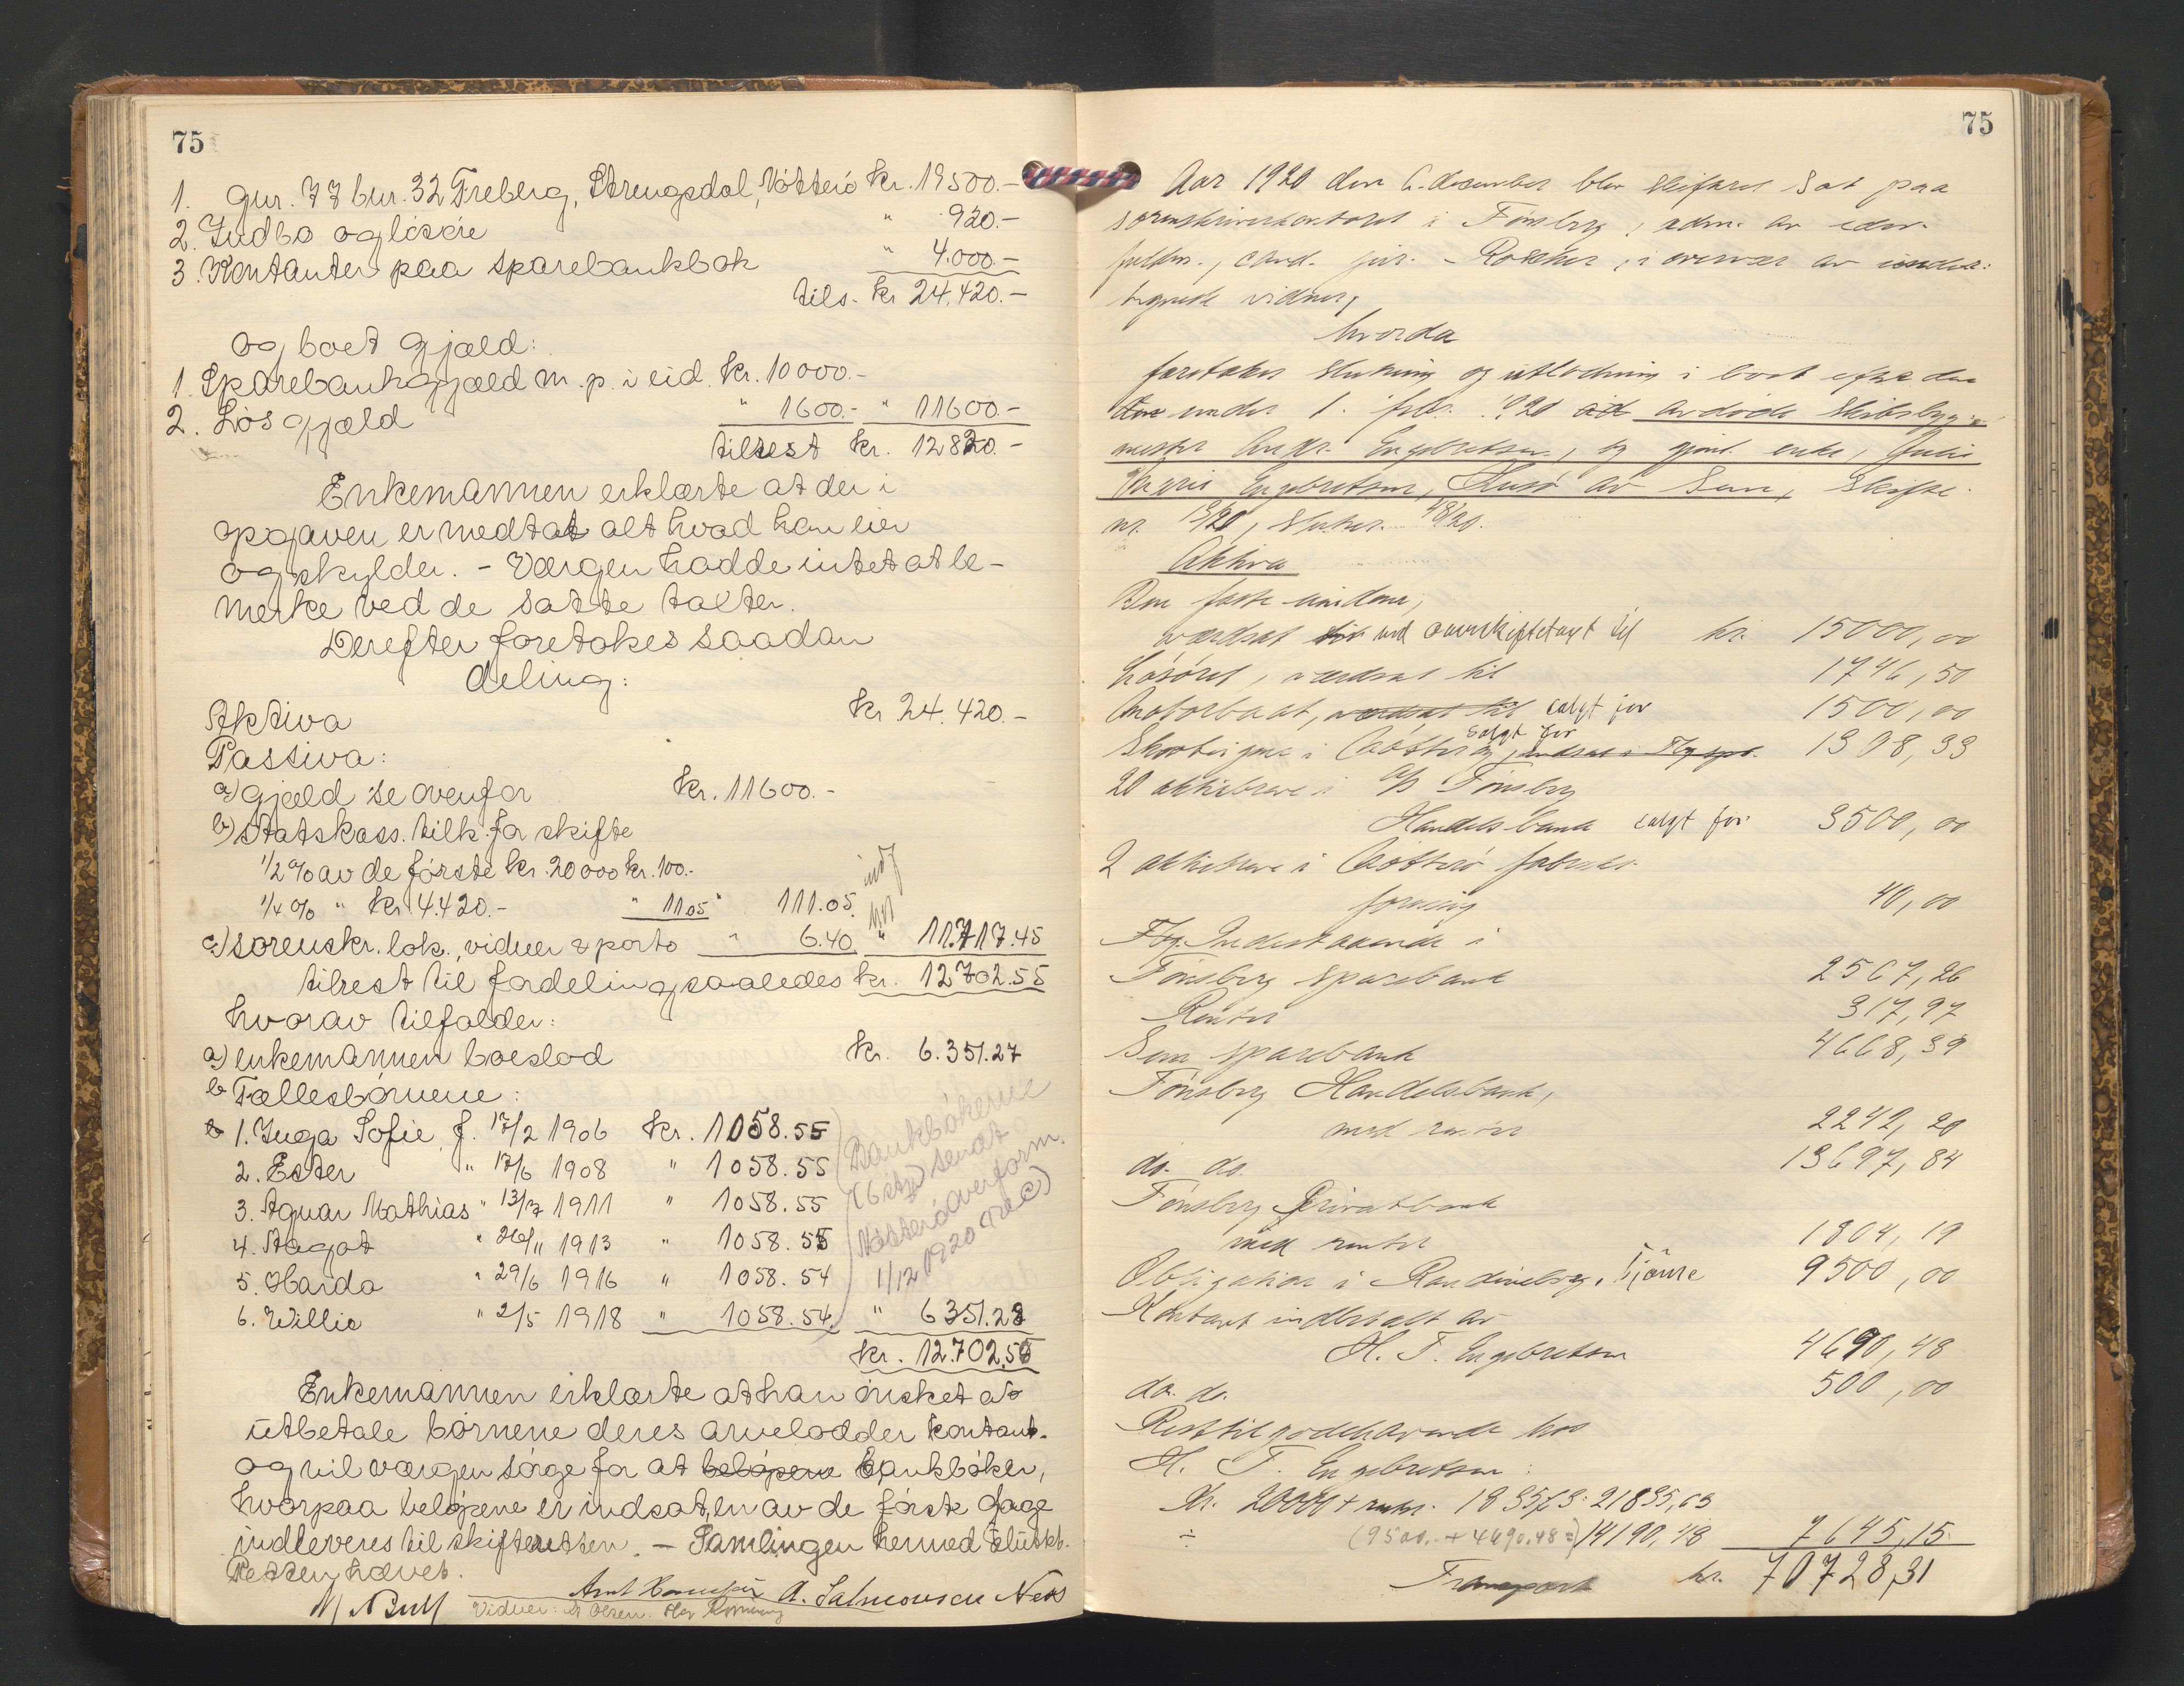 75
1. gnr. 77 bnr. 32 Freberg, Strengsdal, Nötterö kr. 19500.-
2. Indbo og lösöre " 920.-
3. Kontanter paa sparebankbok " 4.000.-
tils. kr 24.420.-
og boet gjæld:
1. Sparebankgjæld m. p. i eid. kr. 10000.-
2. Lös gjæld " 1600.- " 11600.-
tilrest kr. 12820.-
Enkemannen erklærte at der i
opgaven er medtat alt hvad han eier
og skylder. - Værgen hadde intet at be-
merke ved de satte takter.
Derefter foretokes saadan
deling:
Aktiva kr 24.420.-
Passiva:
a) gjæld se ovenfor kr. 11600.-
b) statskass. tilk. for skifte
1/2 % av de förste kr. 20000 kr. 100.-
1/4 % " kr 4.420.- " 11.05 " 111.05
c) sorenskr. lok., vidner & porto " 6.40 " 11.717.45
tilrest til fordeling saaledes kr. 12702.55
hvorav tilfalder:
a) enkemannen boeslod kr. 6.351.27
b Fællesbörnene:
1. Inga Sofie, f. 17/2 1906 kr. 1058.55
2. Ester " 17/6 1908 " 1058.55
3. Agnar Mathias " 13/7 1911 " 1058.55
4. Aagot " 26/11 1913 " 1058.55
5. Harda " 29/6 1916 " 1058.54
6. Willie " 2/5 1918 " 1058.54 " 6351.28
Bankbökerne
(6 stk) sendt
Nötterö overform.
1/12 1920
kr. 12.702.55
Enkemannen erklærte at han önsket at
utbetale börnene deres arvelodder kontant.
og vil værgen sörge for at belöpene bankböker,
hvorpaa belöpene er indsat, en av de förste dage
indleveres til skifteretten. - Samlingen hermed sluttet.
Retten hævet.
A. Salmonsen Næs
Vidner: Olsen.
75
Aar 1920 den 6. december blev skifteret sat paa
sorenskriverkontoret i Tönsberg, adm. av edsv.
fuldm., cand. jur. i overvær av under-
tegnede vidner,
hvorda
foretokes slutning og utlodning i boet efter den
den under 1. febr. 1920 avdöde skibsbyg-
mester Andr. Engebretsen, og gjenl. enke, Julie
Marie Engebretsen, Husö av Sem, skifte
nr. 13/20, sluttet
Aktiva
Den faste eiendom,
værdsat ved overskiftetakt til kr. 15000,00
Lösöret, værdsat til 1746,50
Motorbaat, værdsat til solgt for 1500,00
solgt for
i Nötterö 1308,33
20 aktiebreve i A/S Tönsberg
Handelsbank solgt for 3500,00
2 aktiebreve i Nötterö
forening 40,00
Indestaaende i
Tönsberg sparebank 2567,26
Renter 317,97
Sem sparebank 4668,39
Tönsberg Handelsbank,
med renter 2242,20
do. do. 13697,84
Tönsberg Privatbank
med renter 1804,19
Obligation i Tjöme 9500,00
Kontant indbetalt av
H. T. Engebretsen 4690,48
do. do. 500,00
Resttilgodehavende hos
H. T. Engebretsen:
Kr. 20000 + renter 1835,63: 21835,63
÷ (9500.- + 4690.48 =) 14190,48 7645,15
Transport kr. 70728,31